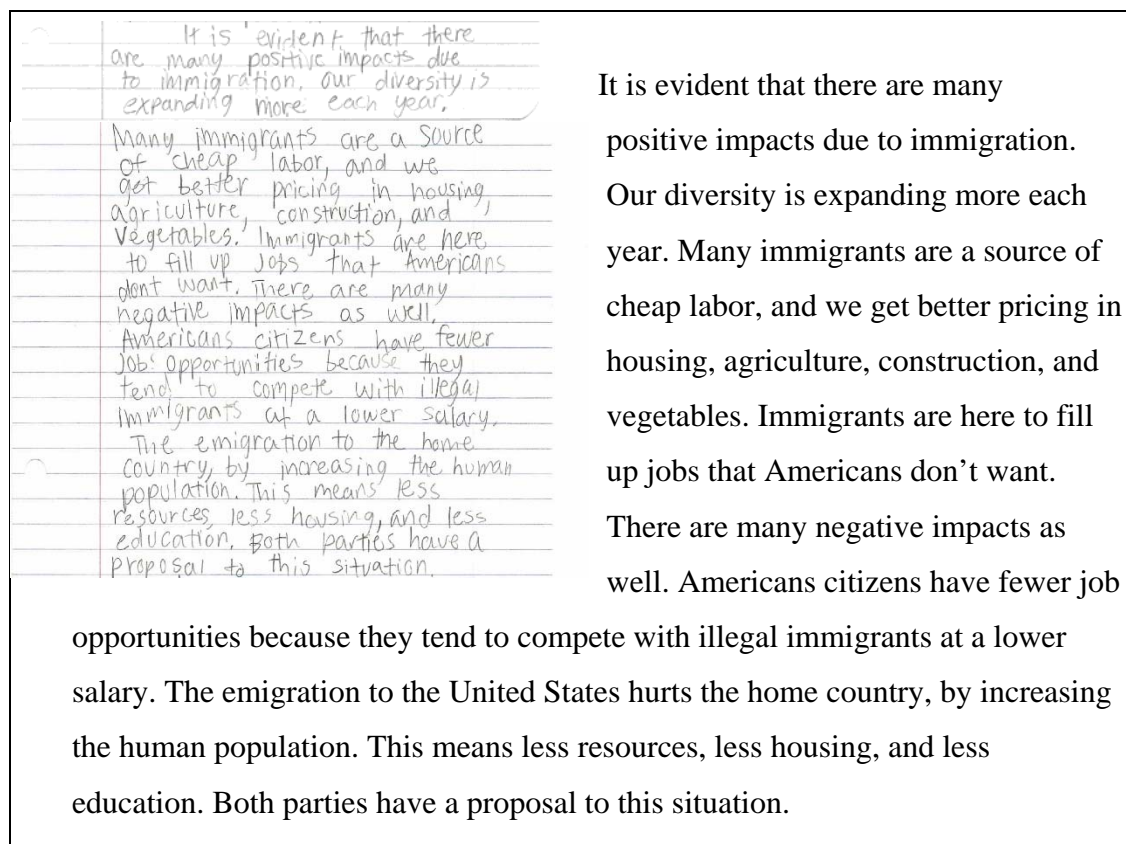 It is evident that there
are many positive impacts due
to immigration. our diversity is
expanding more each year.
Many immigrants are a source
of cheap labor, and we
get better pricing in housing,
agriculture, construction, and
vegetables. Immigrants are here
to fill up jobs that Americans
dont want. There are many
negative impacts as well.
Americans citizens have fewer
jobs opportunities because they
tend to compete with illegal
immigrants at a lower salary.
The emigration to the home
country, by increasing the human
population. This means less
resources, less housing, and less
education. Both parties have a
proposal to this situation.
It is evident that there are many
positive impacts due to immigration.
Our diversity is expanding more each
year. Many immigrants are a source of
cheap labor, and we get better pricing in
housing, agriculture, construction, and
vegetables. Immigrants are here to fill
up jobs that Americans don’t want.
There are many negative impacts as
well. Americans citizens have fewer job
opportunities because they tend to compete with illegal immigrants at a lower
salary. The emigration to the United States hurts the home country, by increasing
the human population. This means less resources, less housing, and less
education. Both parties have a proposal to this situation.